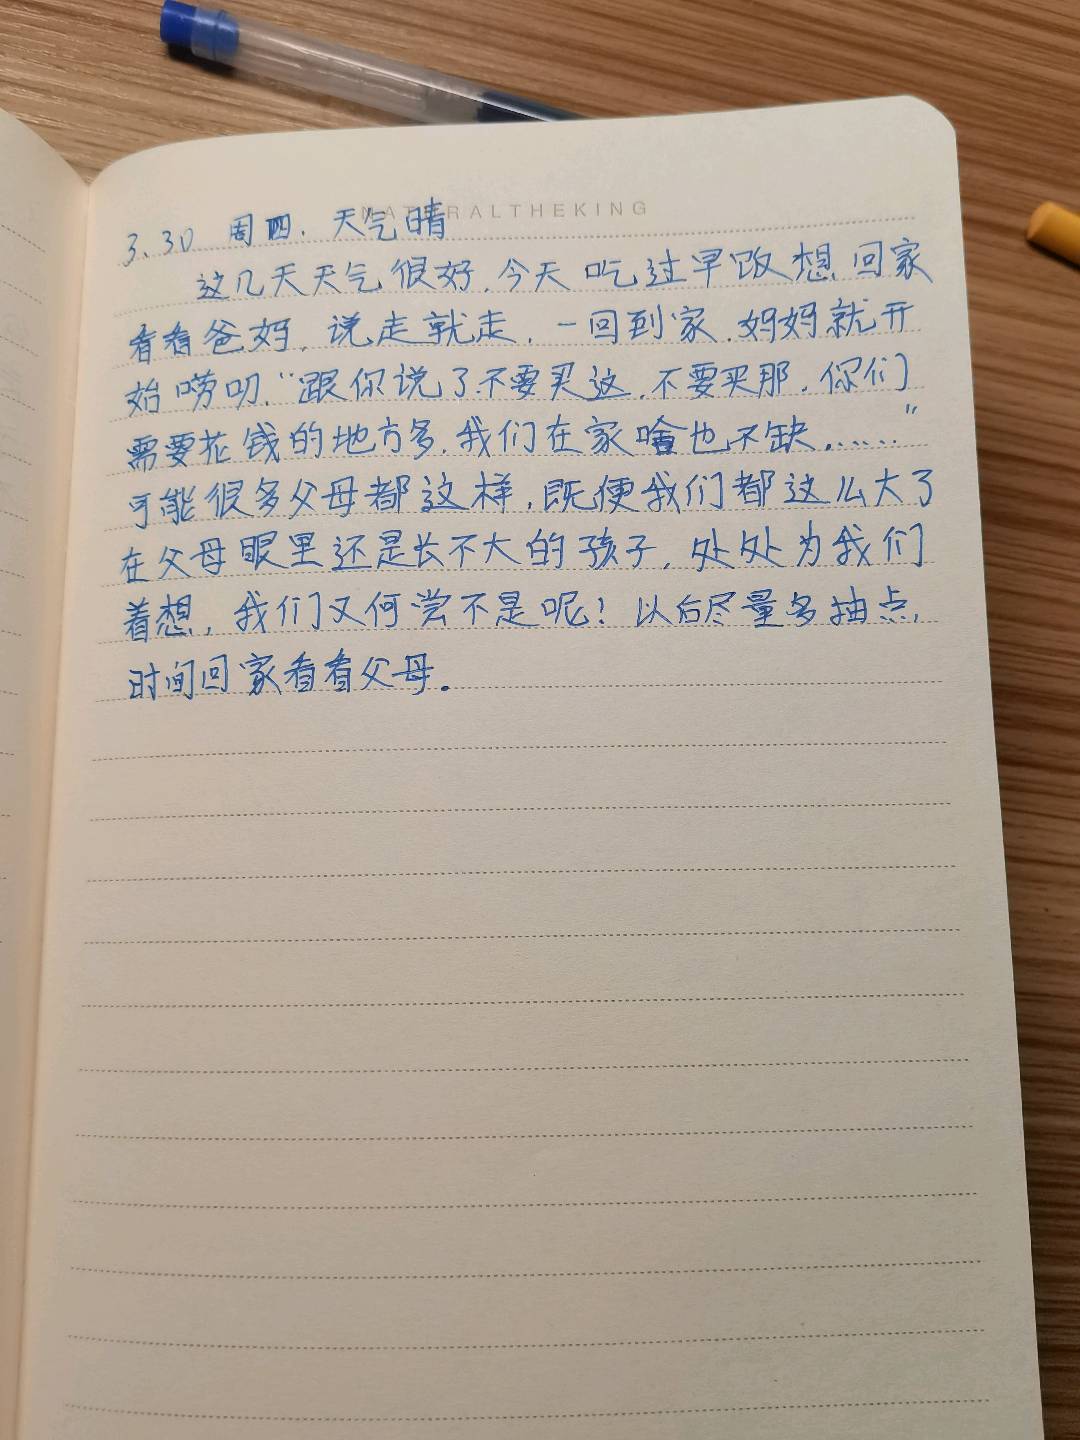 NATURALTHEKING
3.30 周四. 天气晴
这几天天气很好.今天吃过早饭想回家
看看爸妈.说走就走.一回到家.妈妈就开
始唠叨.“跟你说了不要买这.不要买那.你们
需要花钱的地方多.我们在家啥也不缺.……”
可能很多父母都这样,既便我们都这么大了
在父母眼里还是长不大的孩子,处处为我们
着想,我们又何尝不是呢!以后尽量多抽点,
时间回家看看父母.